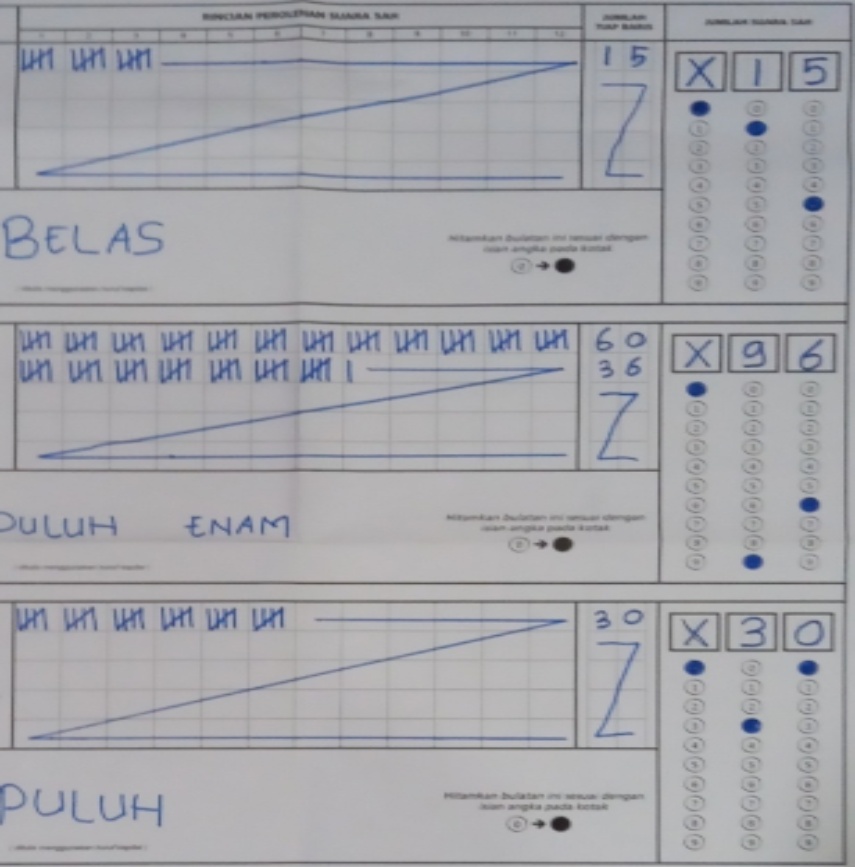 RINCIAN PEROLEHAN SUARA SAH
JUMLAH TIAP BARIS
JUMLAH SUARA SAH
1 2 3 4 5 6 7 8 9 10 11 12
15
X 1 5
BELAS
Hitamkan bulatan ini sesuai dengan
isian angka pada kotak
0 → ●
( ditulis menggunakan huruf kapital )
60
36
X 9 6
PULUH ENAM
Hitamkan bulatan ini sesuai dengan
isian angka pada kotak
0 → ●
( ditulis menggunakan huruf kapital )
30
X 3 0
PULUH
Hitamkan bulatan ini sesuai dengan
isian angka pada kotak
0 → ●
( ditulis menggunakan huruf kapital )